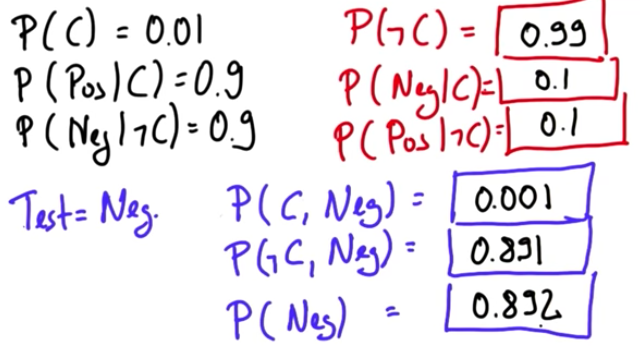 P(C) = 0.01
P(¬C) = 0.99
P(Pos|C) = 0.9
P(Neg|C) = 0.1
P(Neg|¬C) = 0.9
P(Pos|¬C) = 0.1
Test = Neg.
P(C, Neg) = 0.001
P(¬C, Neg) = 0.891
P(Neg) = 0.892